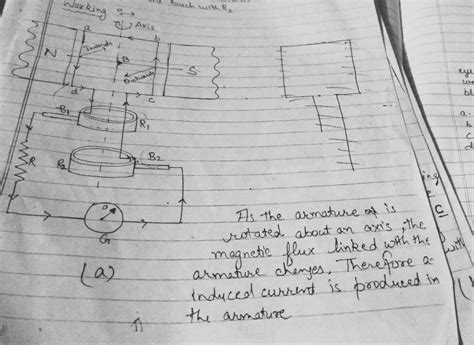 touch with R2
Working
Axis
a
b
N
Inwards
B
S
Outwards
d
c
B1
R1
R
R2
B2
G
(a)
As the armature of is
rotated about an axis, the
magnetic flux linked with the
armature changes. Therefore a
induced current is produced in
the armature
ing
C
with
a.
b
c
d